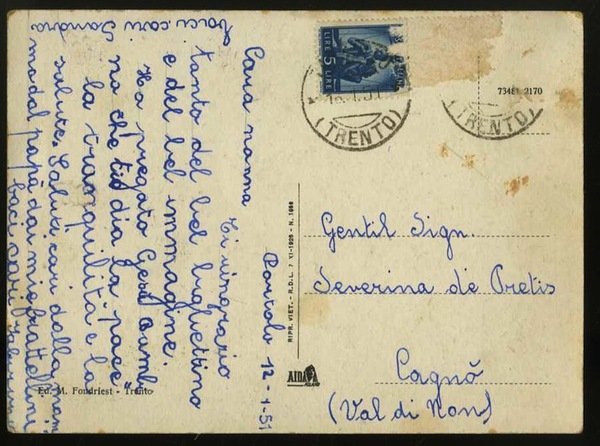 Bortolo 12-1-51
Cara nonna
Ti ringrazio
tanto del bel biglettino
e del bel immagine.
Ho pregato Gesù Bamb
no che ti dia la pace
la tranquilità e la
salute. Saluti cari dalla
modal papà dai miei fratellini
baci cari
baci cari Sandra
LIRE 5 LIRE
51
(TRENTO)
(TRENTO)
73481 2170
Gentil Sign.
Severina de Pretis
Cagnò
(Val di Non)
RIPR. VIET. - R.D.L. 7 XI-1925 - N. 1950
Ed. M. Fondriest - Trento